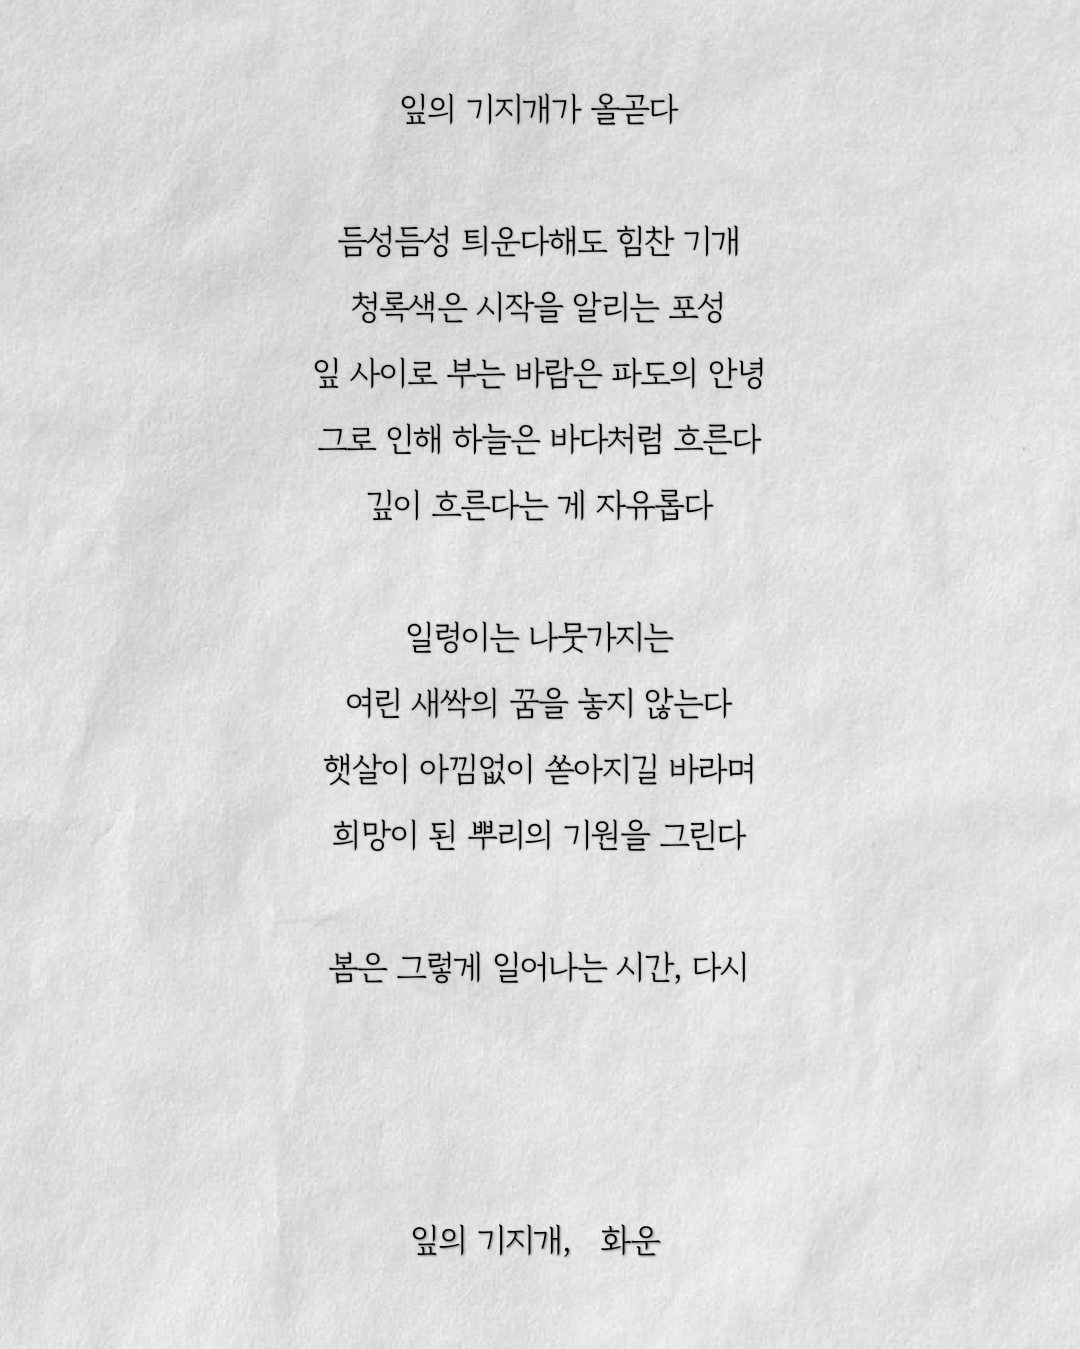 잎의 기지개가 올곧다
듬성듬성 틔운다해도 힘찬 기개
청록색은 시작을 알리는 포성
잎 사이로 부는 바람은 파도의 안녕
그로 인해 하늘은 바다처럼 흐른다
깊이 흐른다는 게 자유롭다
일렁이는 나뭇가지는
여린 새싹의 꿈을 놓지 않는다
햇살이 아낌없이 쏟아지길 바라며
희망이 된 뿌리의 기원을 그린다
봄은 그렇게 일어나는 시간, 다시
잎의 기지개, 화운